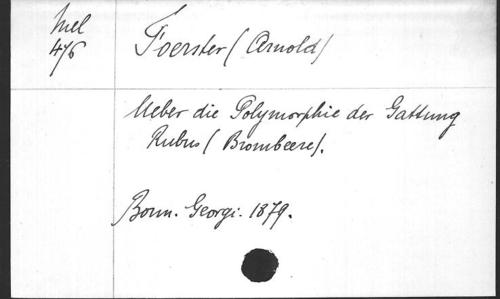 Mel
476
Foerster (Arnold)
Ueber die Polymorphie der Gattung
Rubus (Brombeere).
Bonn. Georgi. 1879.